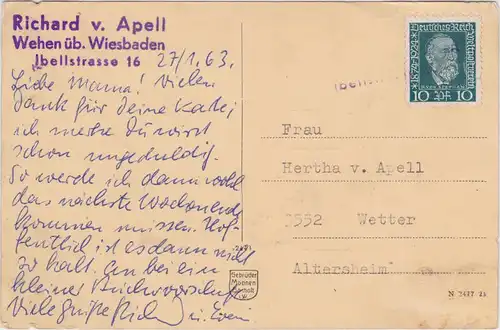 Richard v. Apell
Wehen üb. Wiesbaden
Ibellstrasse 16
27/1.63.
Liebe Mama! Vielen
Dank für Deine Karte,
ich merke Du wirst
schon ungeduldig.
So werde ich dann wohl
das nächste Wochenende
kommen müssen. Hof-
fentlich ist es dann nicht
zu kalt. An bei ein
kleiner
Viele Grüße
Deutsches Reich
1874-1924
Weltpostverein
H. von Stephan
10 Pf 10
Frau
Hertha v. Apell
3552 Wetter
Altersheim
Gebrüder
N 2437 Zz